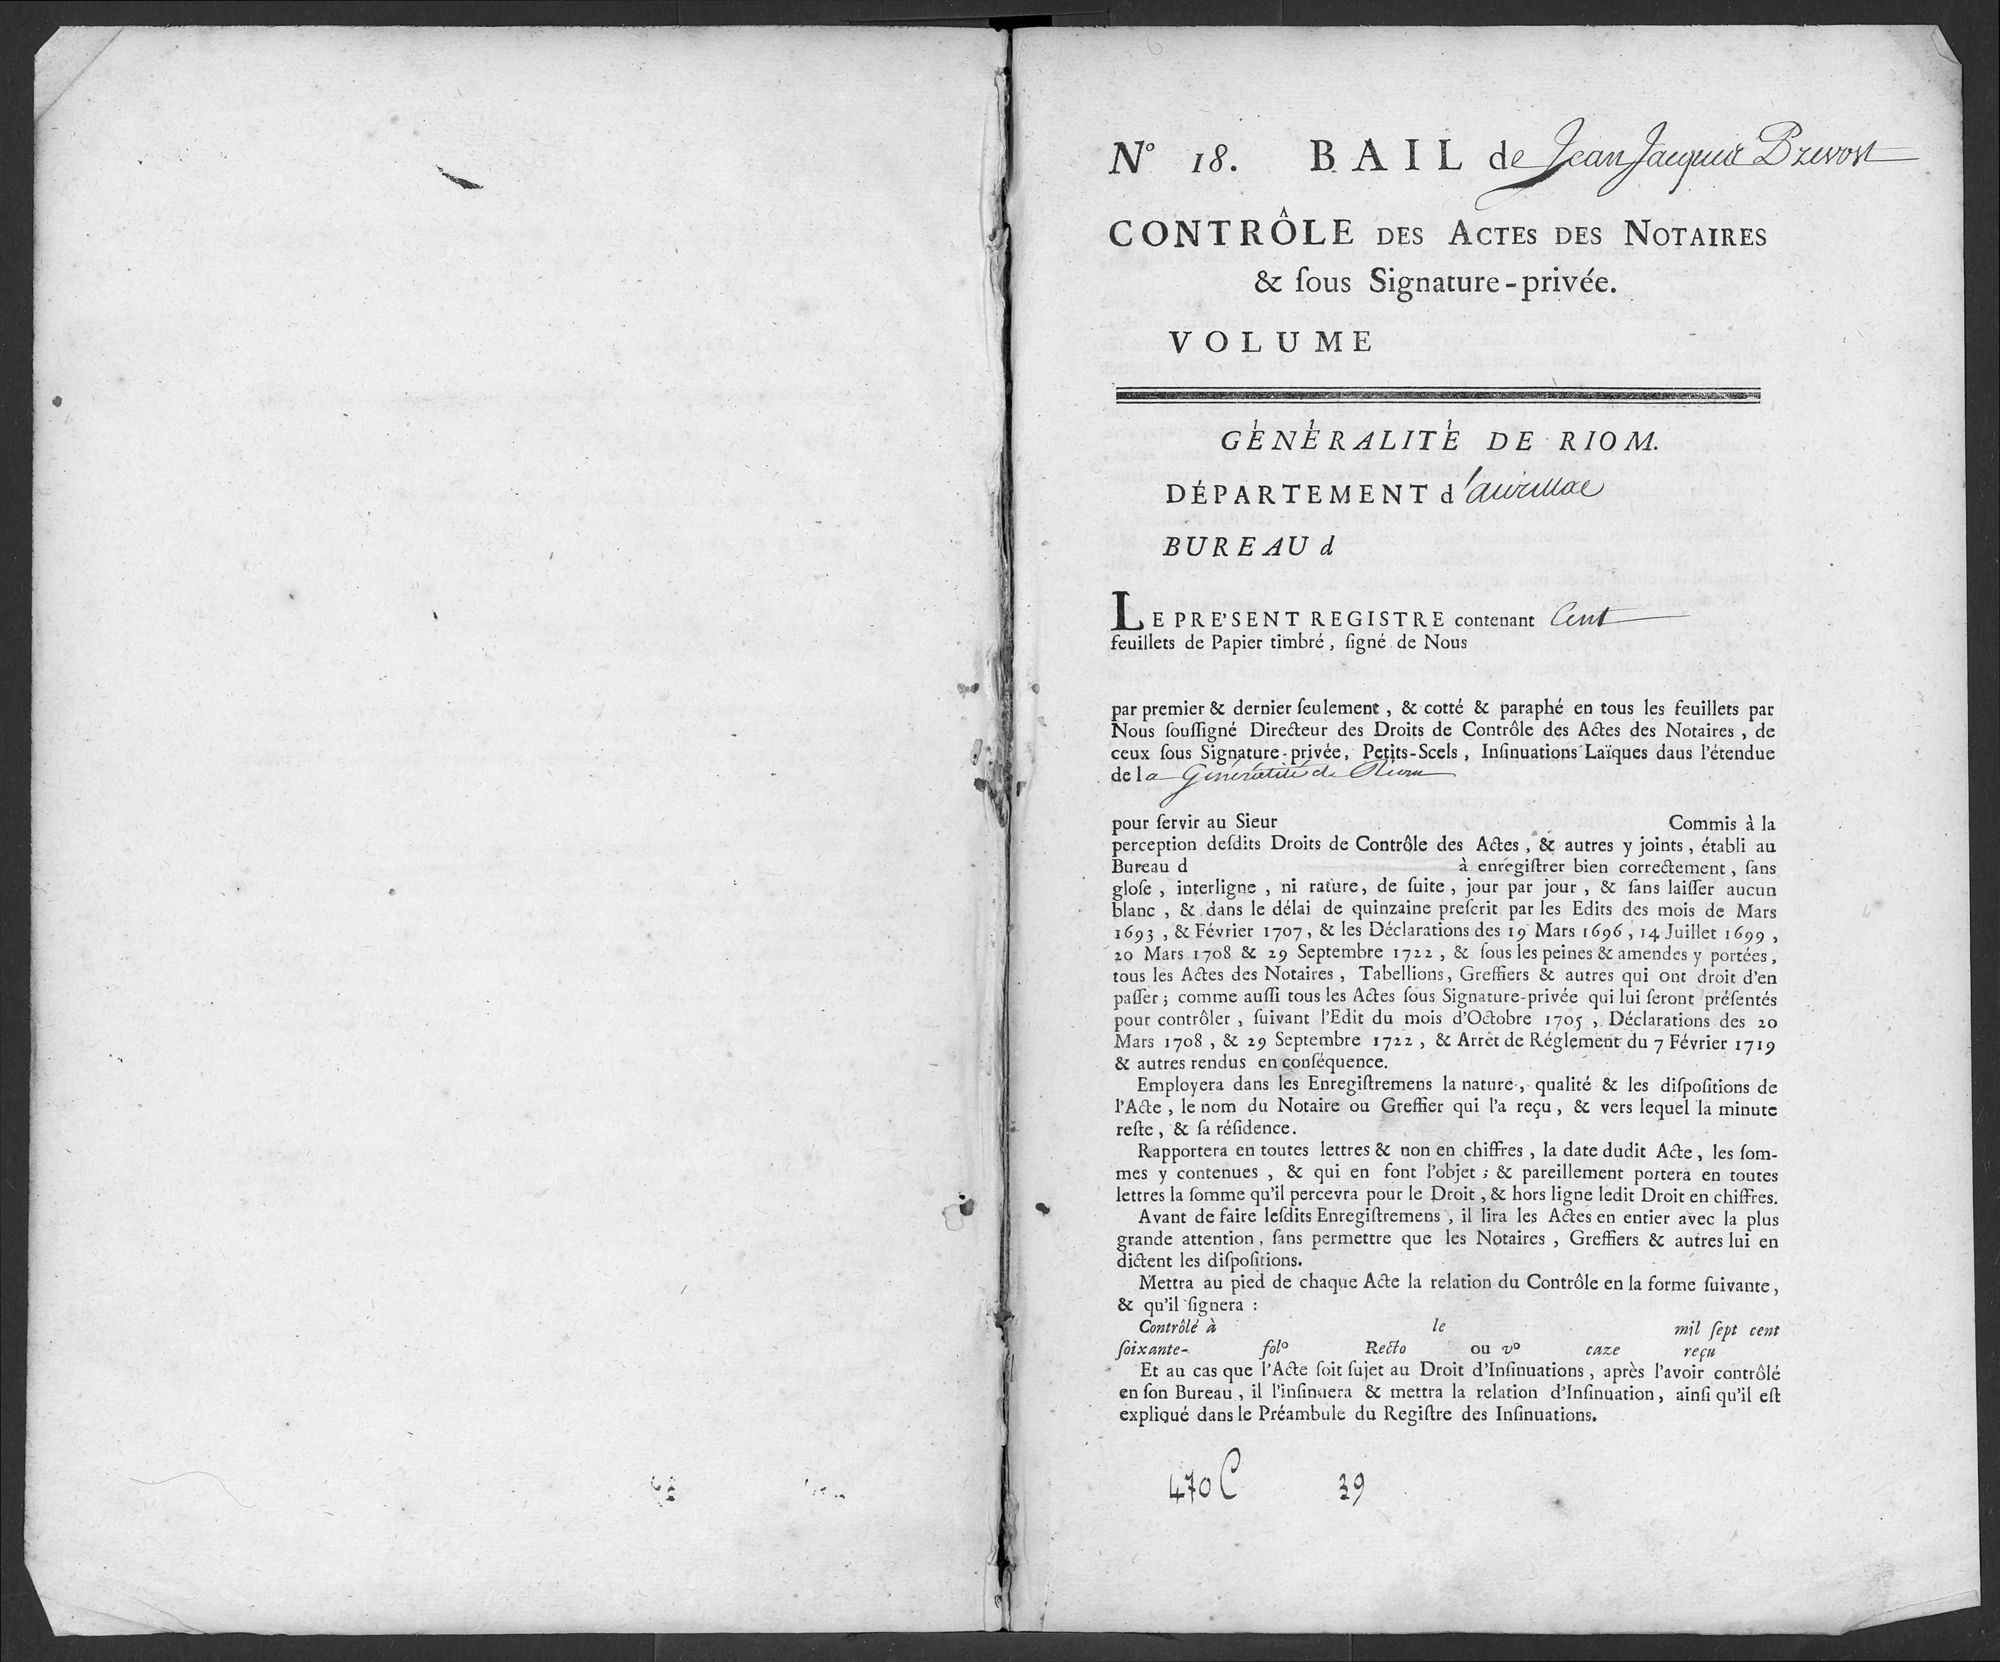 Nº 18. BAIL de Jean Jacques Prevost
CONTRÔLE DES ACTES DES NOTAIRES
& ſous Signature-privée.
VOLUME
GÉNÉRALITÉ DE RIOM.
DÉPARTEMENT d'aurillac
BUREAU d
LE PRE'SENT REGISTRE contenant Cent
feuillets de Papier timbré, ſigné de Nous
par premier & dernier ſeulement, & cotté & paraphé en tous les feuillets par
Nous ſouſſigné Directeur des Droits de Contrôle des Actes des Notaires, de
ceux ſous Signature-privée, Petits-Scels, Inſinuations Laïques daus l'étendue
de la Généralité de Riom
pour ſervir au Sieur Commis à la
perception deſdits Droits de Contrôle des Actes, & autres y joints, établi au
Bureau d à enregiſtrer bien correctement, ſans
gloſe, interligne, ni rature, de ſuite, jour par jour, & ſans laiſſer aucun
blanc, & dans le délai de quinzaine preſcrit par les Edits des mois de Mars
1693, & Février 1707, & les Déclarations des 19 Mars 1696, 14 Juillet 1699,
20 Mars 1708 & 29 Septembre 1722, & ſous les peines & amendes y portées,
tous les Actes des Notaires, Tabellions, Greffiers & autres qui ont droit d'en
paſſer; comme auſſi tous les Actes ſous Signature-privée qui lui ſeront préſentés
pour contrôler, ſuivant l'Edit du mois d'Octobre 1705, Déclarations des 20
Mars 1708, & 29 Septembre 1722, & Arrêt de Réglement du 7 Février 1719
& autres rendus en conſéquence.
Employera dans les Enregiſtremens la nature, qualité & les diſpoſitions de
l'Acte, le nom du Notaire ou Greffier qui l'a reçu, & vers lequel la minute
reſte, & ſa réſidence.
Rapportera en toutes lettres & non en chiffres, la date dudit Acte, les ſom-
mes y contenues, & qui en font l'objet; & pareillement portera en toutes
lettres la ſomme qu'il percevra pour le Droit, & hors ligne ledit Droit en chiffres.
Avant de faire leſdits Enregiſtremens, il lira les Actes en entier avec la plus
grande attention, ſans permettre que les Notaires, Greffiers & autres lui en
dictent les diſpoſitions.
Mettra au pied de chaque Acte la relation du Contrôle en la forme ſuivante,
& qu'il ſignera :
Contrôlé à le mil ſept cent
ſoixante- folº Recto ou vº caze reçu
Et au cas que l'Acte ſoit ſujet au Droit d'Inſinuations, après l'avoir contrôlé
en ſon Bureau, il l'inſinuera & mettra la relation d'Inſinuation, ainſi qu'il eſt
expliqué dans le Préambule du Regiſtre des Inſinuations.
470 C 39